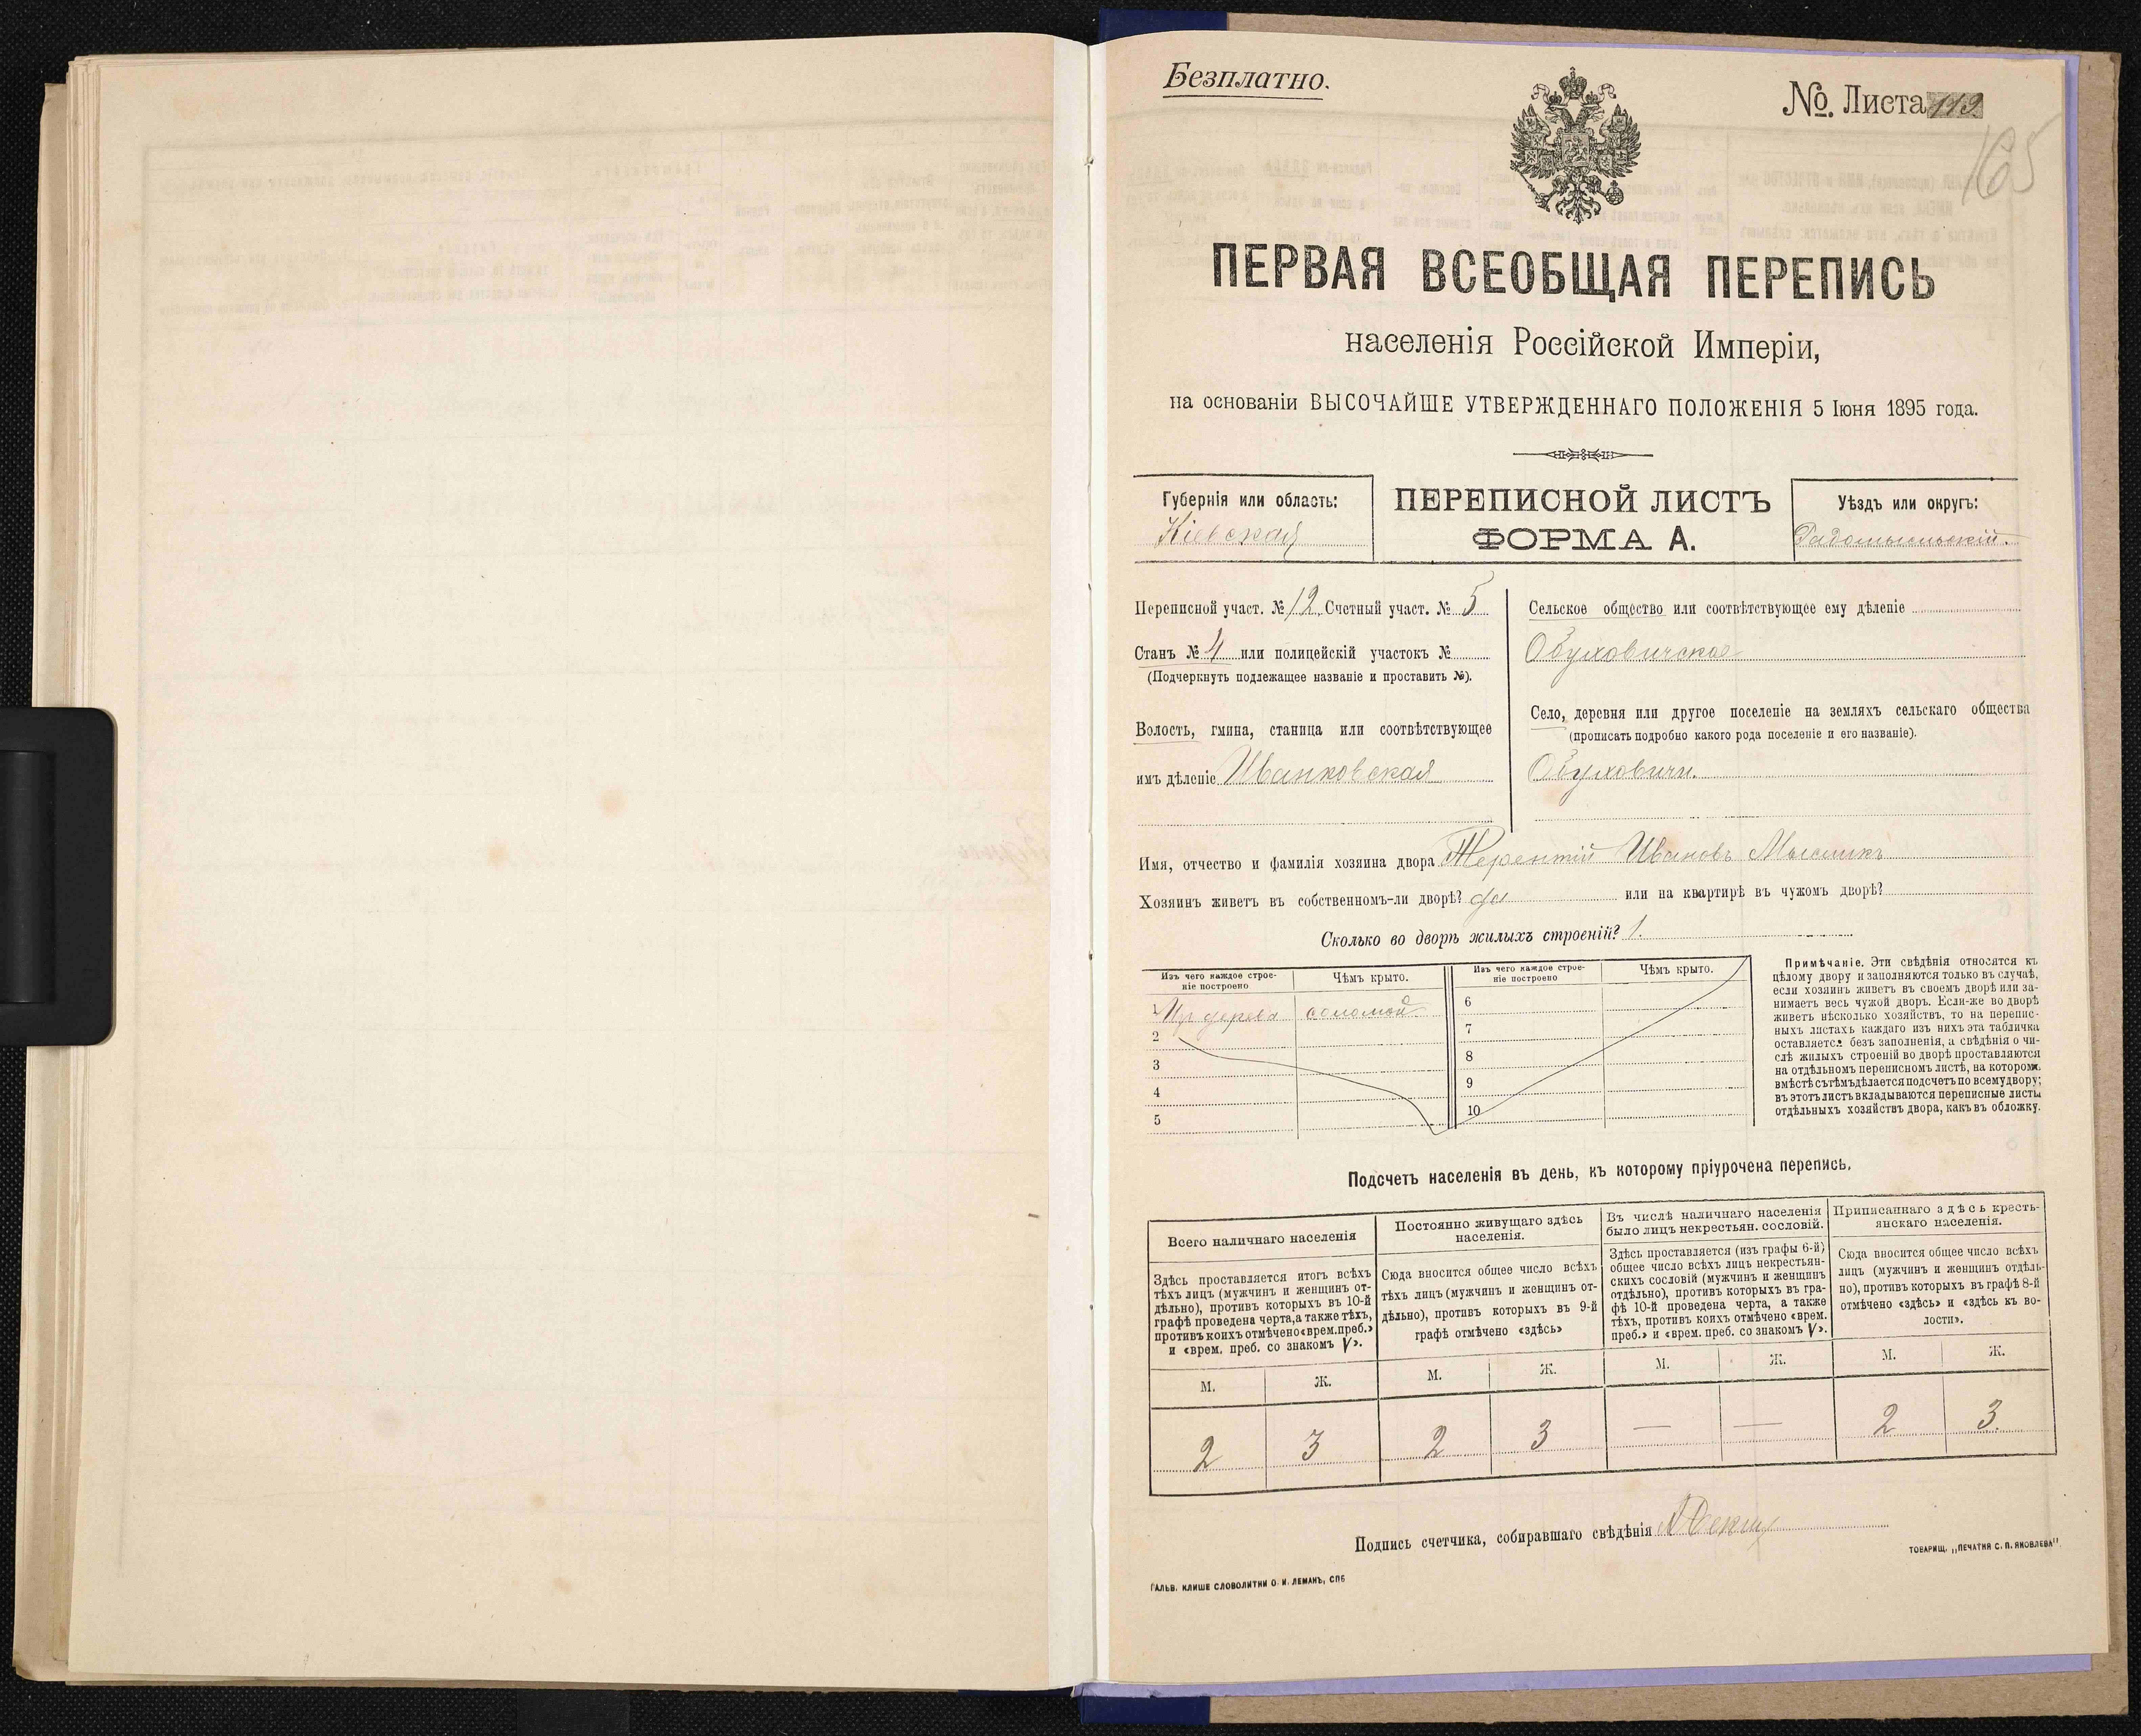 Безплатно.
№. Листа 119.
165
ПЕРВАЯ ВСЕОБЩАЯ ПЕРЕПИСЬ
населенія Россійской Имперіи,
на основаніи ВЫСОЧАЙШЕ УТВЕРЖДЕННАГО ПОЛОЖЕНІЯ 5 Іюня 1895 года.
Губернія или область:
Кіевская
ПЕРЕПИСНОЙ ЛИСТЪ
ФОРМА А.
Уѣздъ или округъ:
Радомысльскій.
Переписной участ. № 12 Счетный участ. № 5
Станъ № 4 или полицейскій участокъ №
(Подчеркнуть подлежащее названіе и проставить №).
Волость, гмина, станица или соотвѣтствующее
имъ дѣленіе Иванковская
Сельское общество или соотвѣтствующее ему дѣленіе
Обуховичское
Село, деревня или другое поселеніе на земляхъ сельскаго общества
(прописать подробно какого рода поселеніе и его названіе).
Обуховичи.
Имя, отчество и фамилія хозяина двора Терентій Ивановъ
Хозяинъ живетъ въ собственномъ-ли дворѣ? да или на квартирѣ въ чужомъ дворѣ?
Сколько во дворѣ жилыхъ строеній? 1.
Изъ чего каждое строе-
ніе построено
Чѣмъ крыто.
Изъ чего каждое строе-
ніе построено
Чѣмъ крыто.
1 Изъ дерева соломой
2
3
4
5
6
7
8
9
10
Примѣчаніе. Эти свѣдѣнія относятся къ
цѣлому двору и заполняются только въ случаѣ,
если хозяинъ живетъ въ своемъ дворѣ или за-
нимаетъ весь чужой дворъ. Если-же во дворѣ
живетъ нѣсколько хозяйствъ, то на перепис-
ныхъ листахъ каждаго изъ нихъ эта табличка
оставляется безъ заполненія, а свѣдѣнія о чи-
слѣ жилыхъ строеній во дворѣ проставляются
на отдѣльномъ переписномъ листѣ, на которомъ
вмѣстѣ съ тѣмъ дѣлается подсчетъ по всему двору;
въ этотъ листъ вкладываются переписные листы
отдѣльныхъ хозяйствъ двора, какъ въ обложку.
Подсчетъ населенія въ день, къ которому пріурочена перепись.
Всего наличнаго населенія
Здѣсь проставляется итогъ всѣхъ
тѣхъ лицъ (мужчинъ и женщинъ от-
дѣльно), противъ которыхъ въ 10-й
графѣ проведена черта, а также тѣхъ,
противъ коихъ отмѣчено «врем. преб.»
и «врем. преб. со знакомъ V».
Постоянно живущаго здѣсь
населенія.
Сюда вносится общее число всѣхъ
тѣхъ лицъ (мужчинъ и женщинъ от-
дѣльно), противъ которыхъ въ 9-й
графѣ отмѣчено «здѣсь»
Въ числѣ наличнаго населенія
было лицъ некрестьян. сословій.
Здѣсь проставляется (изъ графы 6-й)
общее число всѣхъ лицъ некрестьян-
скихъ сословій (мужчинъ и женщинъ
отдѣльно), противъ которыхъ въ гра-
фѣ 10-й проведена черта, а также
тѣхъ, противъ коихъ отмѣчено «врем.
преб.» и «врем. преб. со знакомъ V».
Приписаннаго здѣсь кресть-
янскаго населенія.
Сюда вносится общее число всѣхъ
лицъ (мужчинъ и женщинъ отдѣль-
но), противъ которыхъ въ графѣ 8-й
отмѣчено «здѣсь» и «здѣсь къ во-
лости».
М. Ж. М. Ж. М. Ж. М. Ж.
2 3 2 3 — — 2 3.
Подпись счетчика, собиравшаго свѣдѣнія
ГАЛЬВ. КЛИШЕ СЛОВОЛИТНИ О. И. ЛЕМАНЪ, СПБ
ТОВАРИЩ. „ПЕЧАТНЯ С. П. ЯКОВЛЕВА"